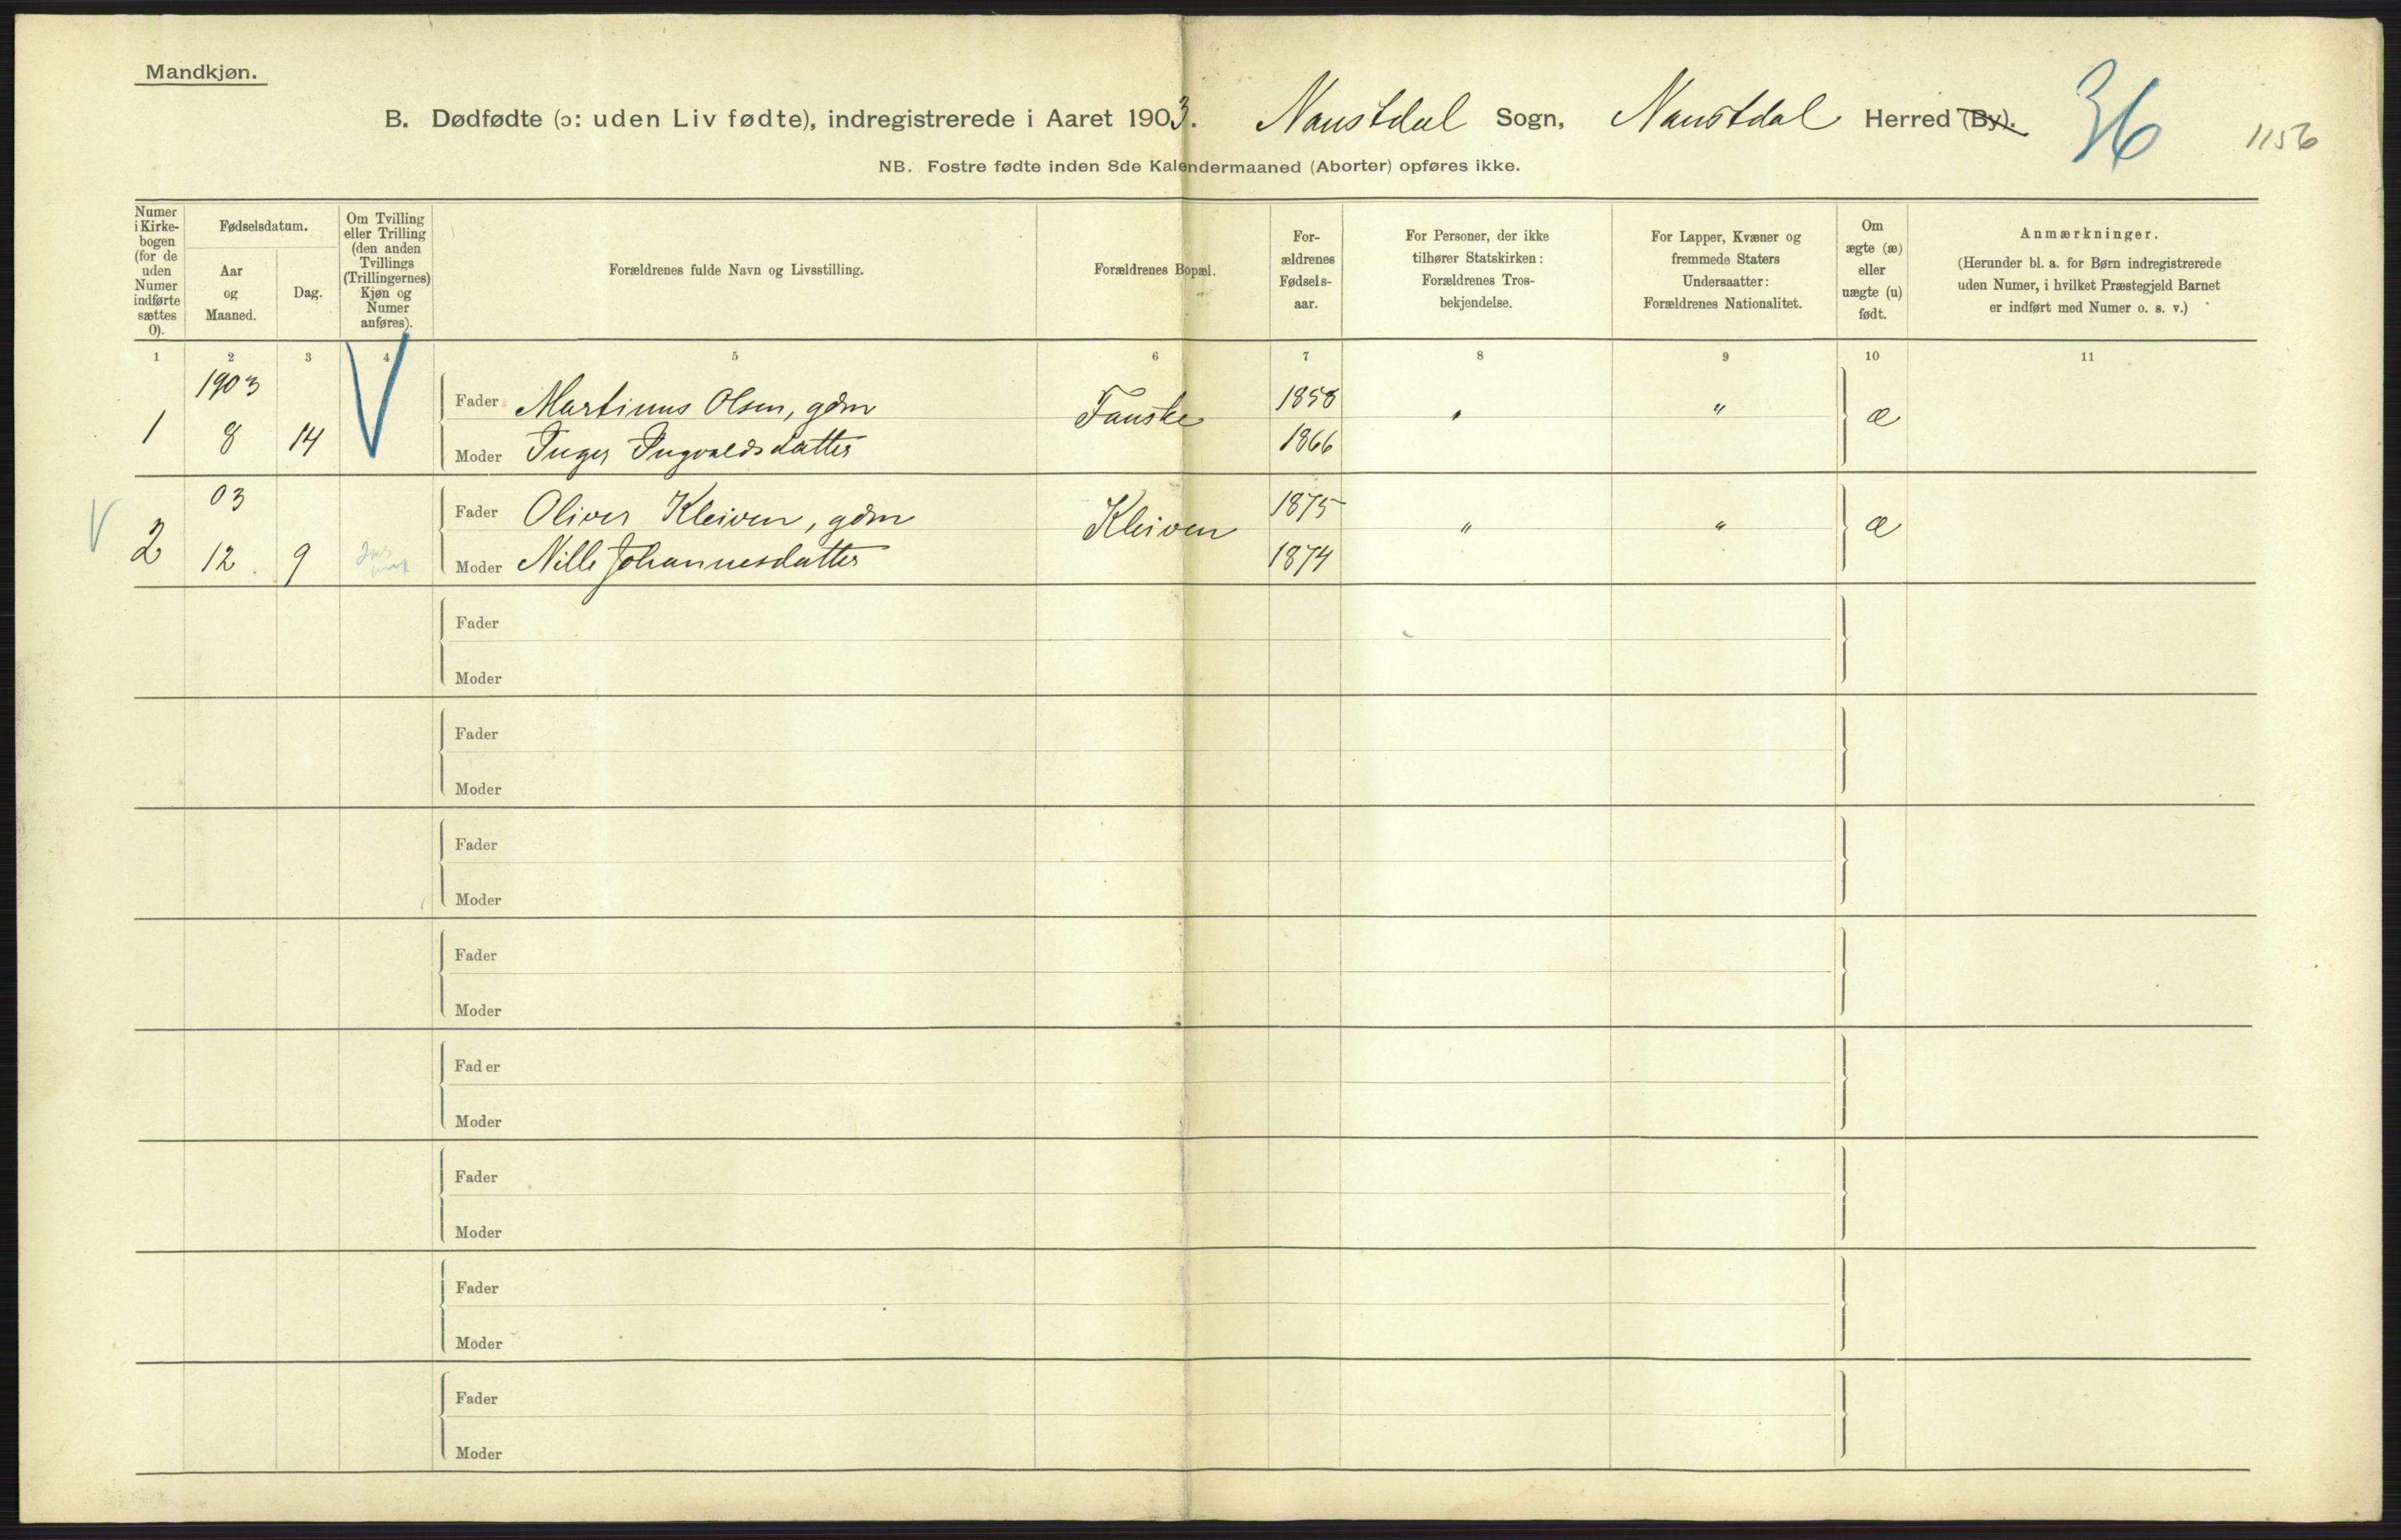 Mandkjøn.
B. Dødfødte (ɔ: uden Liv fødte), indregistrerede i Aaret 1903. Naustdal Sogn, Naustdal Herred (By).
36
1156
NB. Fostre fødte inden 8de Kalendermaaned (Aborter) opføres ikke.
Numer i Kirke-bogen (for de uden Numer indførte sættes 0).
Fødselsdatum.
Aar og Maaned.
Dag.
Om Tvilling eller Trilling (den anden Tvillings (Trillingernes) Kjøn og Numer anføres).
Forældrenes fulde Navn og Livsstilling.
Forældrenes Bopæl.
For-ældrenes Fødsels-aar.
For Personer, der ikke tilhører Statskirken: Forældrenes Tros-bekjendelse.
For Lapper, Kvæner og fremmede Staters Undersaatter: Forældrenes Nationalitet.
Om ægte (æ) eller uægte (u) født.
Anmærkninger.
(Herunder bl. a. for Børn indregistrerede uden Numer, i hvilket Præstegjeld Barnet er indført med Numer o. s. v.)
1 2 3 4 5 6 7 8 9 10 11
1903
Fader Martinus Olsen, gdm Fauske 1858 " " æ
1 8 14
Moder Inger Ingvaldsdatter 1866
03
Fader Oliver Kleiven, gdm Kleiven 1875 " " æ
2 12. 9
Moder Nille Johannesdatter 1874
Fader
Moder
Fader
Moder
Fader
Moder
Fader
Moder
Fader
Moder
Fader
Moder
Fader
Moder
Fader
Moder